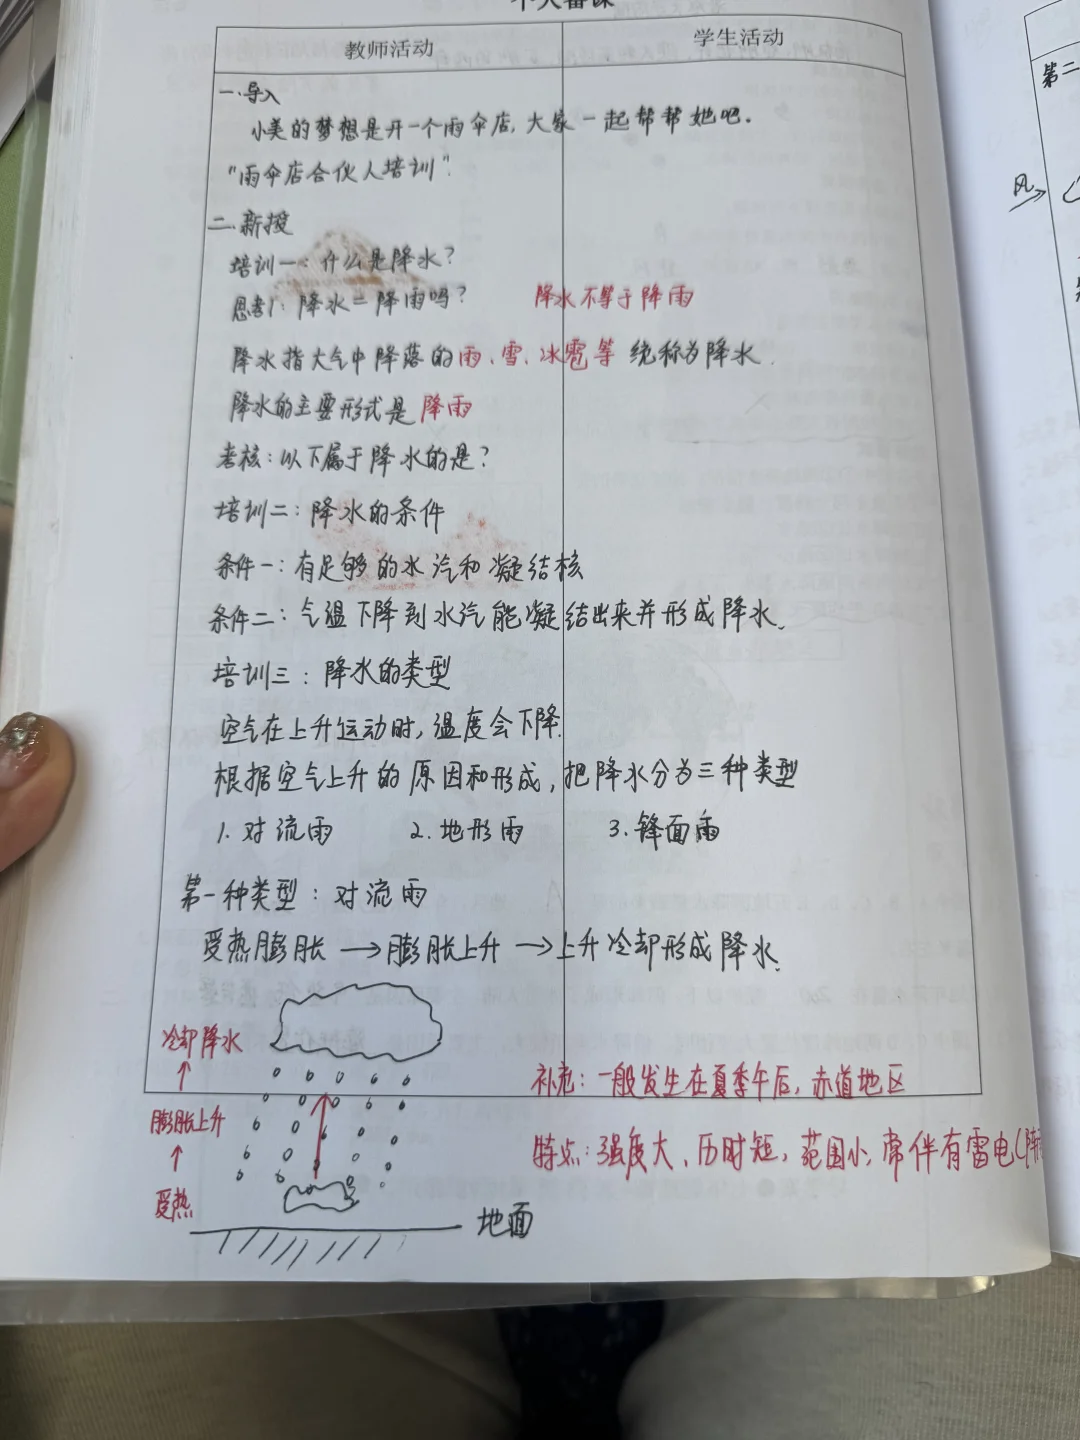 个人备课
教师活动
学生活动
一.导入
小美的梦想是开一个雨伞店,大家一起帮帮她吧.
"雨伞店合伙人培训".
二.新授
培训一:什么是降水?
思考1:降水=降雨吗? 降水不等于降雨
降水指大气中降落的雨、雪、冰雹等 统称为降水.
降水的主要形式是 降雨
考核:以下属于降水的是?
培训二:降水的条件
条件一:有足够的水汽和凝结核
条件二:气温下降到水汽能凝结出来并形成降水.
培训三:降水的类型
空气在上升运动时,温度会下降.
根据空气上升的原因和形成,把降水分为三种类型
1.对流雨 2.地形雨 3.锋面雨
第一种类型:对流雨
受热膨胀→膨胀上升→上升冷却形成降水.
冷却降水
膨胀上升
受热
地面
补充:一般发生在夏季午后,赤道地区
特点:强度大、历时短,范围小,常伴有雷电(阵
第二
风